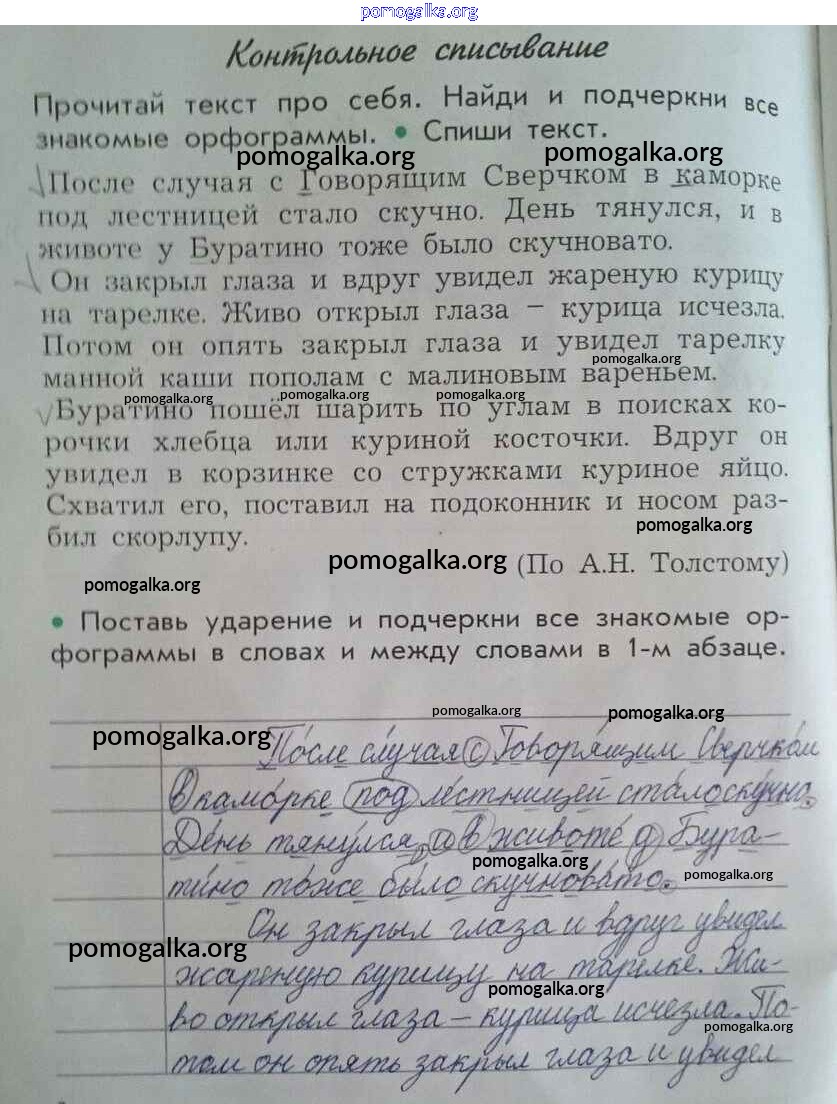 pomogalka.org
Контрольное списывание
Прочитай текст про себя. Найди и подчеркни все
знакомые орфограммы. • Спиши текст.
pomogalka.org pomogalka.org
После случая с Говорящим Сверчком в каморке
под лестницей стало скучно. День тянулся, и в
животе у Буратино тоже было скучновато.
Он закрыл глаза и вдруг увидел жареную курицу
на тарелке. Живо открыл глаза – курица исчезла.
Потом он опять закрыл глаза и увидел тарелку
pomogalka.org
манной каши пополам с малиновым вареньем.
pomogalka.org pomogalka.org pomogalka.org
Буратино пошёл шарить по углам в поисках ко-
рочки хлебца или куриной косточки. Вдруг он
увидел в корзинке со стружками куриное яйцо.
Схватил его, поставил на подоконник и носом раз-
pomogalka.org
бил скорлупу.
pomogalka.org (По А.Н. Толстому)
pomogalka.org
• Поставь ударение и подчеркни все знакомые ор-
фограммы в словах и между словами в 1-м абзаце.
pomogalka.org pomogalka.org
pomogalka.org
По́сле слу́чая с Говоря́щим Сверчко́м
в камо́рке под ле́стницей ста́ло ску́чно.
День тяну́лся, и в животе́ у Бура-
pomogalka.org
ти́но то́же бы́ло скучнова́то.
pomogalka.org
Он закрыл глаза и вдруг увидел
pomogalka.org
жареную курицу на тарелке. Жи-
pomogalka.org
во открыл глаза – курица исчезла. По-
pomogalka.org
том он опять закрыл глаза и увидел